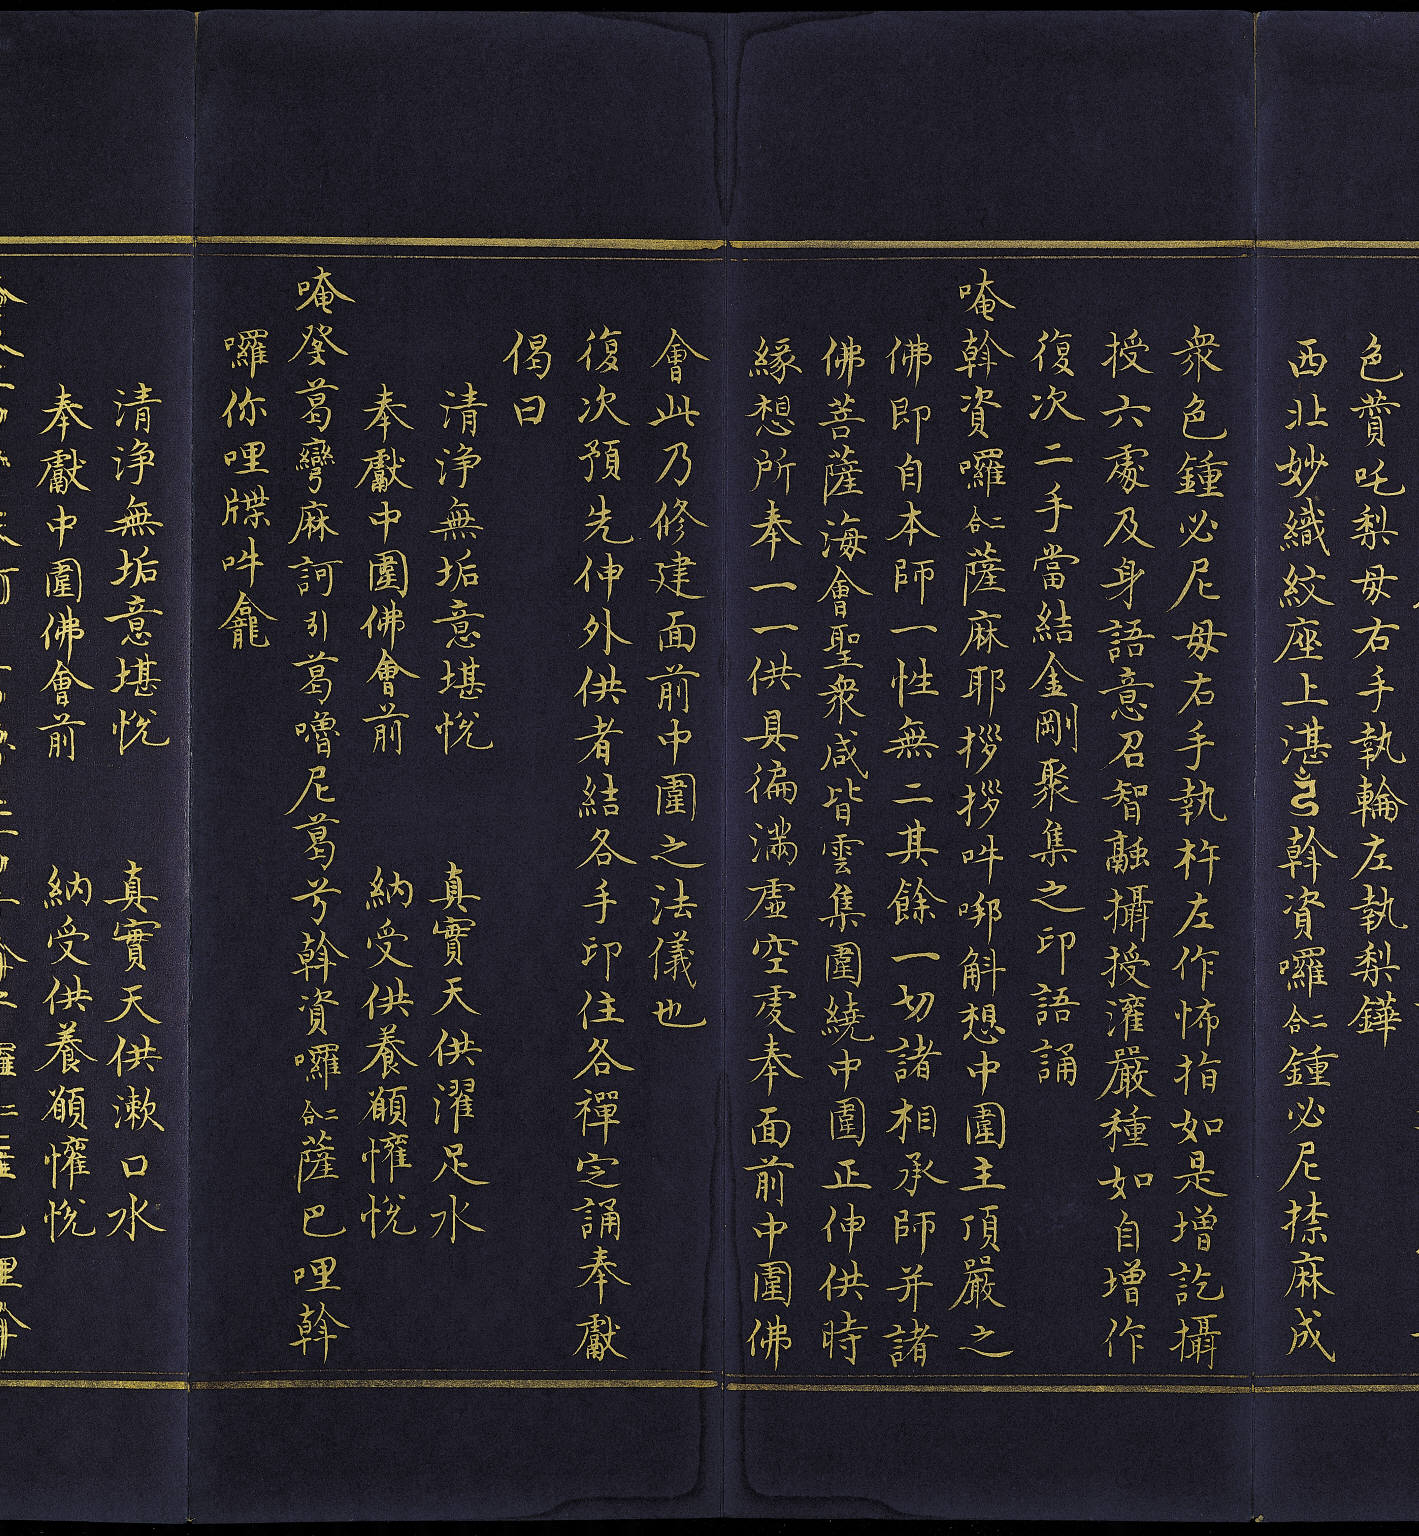 色薲吒梨毋右手執輪左執梨鏵
西北妙織紋座上湛斡資囉二合鍾必尼捺麻成
衆色鍾必尼毋右手執杵左作怖指如是增訖攝
授六處及身語意召智融攝授灌嚴種如自增作
復次二手當結金剛聚集之印語誦
唵斡資囉二合薩麻耶拶拶吽啣斛想中圍主頂嚴之
佛即自本師一性無二其餘一切諸相承師并諸
佛菩薩海會聖衆咸皆雲集圍繞中圍正伸供時
緣想所奉一一供具徧滿虛空處奉面前中圍佛
會此乃修建面前中圍之法儀也
復次預先伸外供者結各手印住各禪定誦奉獻
偈曰
清淨無垢意堪悅 真實天供濯足水
奉獻中圍佛會前 納受供養願懽悅
唵癹葛彎麻訶引葛嚕尼葛兮斡資囉二合薩巴哩斡
囉你哩㗼吽龕
清淨無垢意堪悅 真實天供漱口水
奉獻中圍佛會前 納受供養願懽悅